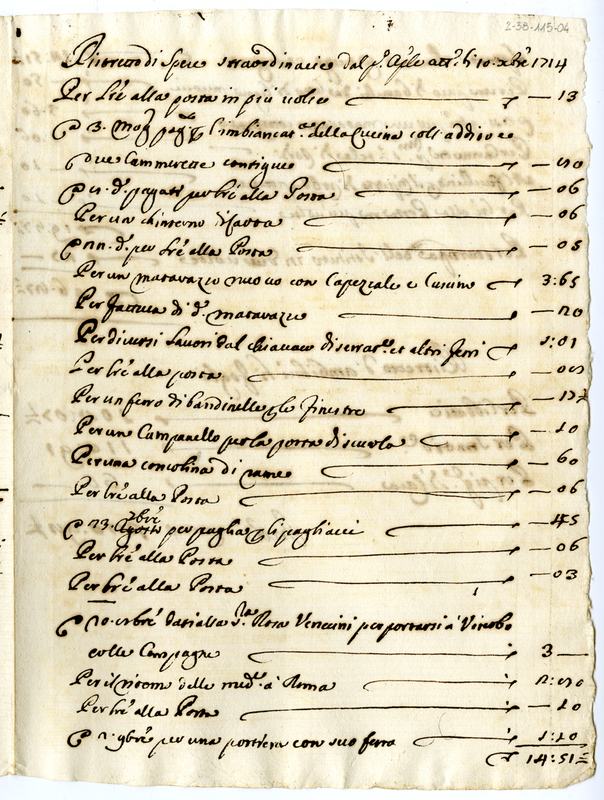 2-38-115-04
Ristretto di Spese straordinarie dal p.º Aple att.º li 10. xbre 1714
Per lre alla posta in più volte — 13
3. Mag. pag. l'imbiancat.ª della Cucina coll'
due Cammerette contigue
d.º pagati per lre alla Posta — 06
Per un chinterno — 06
d.º per lre alla Posta — 05
Per un matarazzo nuovo con Capezzale e Cuscino 3:65
Per fattura di d.º matarazzo — 20
Per diversi lavori dal chiavaro di serrat.e et altri ferri 1:01
Per lre alla posta
Per un ferro di bandinelle p le finestre — 12½
Per un Campanello per la porta di scuola — 10
Per una concolina di rame — 60
Per lre alla Posta — 06
23. 7bre per paglia p li pagliacci — 45
Per lre alla Posta — 06
Per lre alla Posta — 03
dati alla S.ra Rosa Venerini per portarsi à Viterbo
colle Compagne 3 —
Per il ritorno delle med.e à Roma
Per lre alla Posta — 10
9bre per una portiera con suo ferro 1:20
14:51½